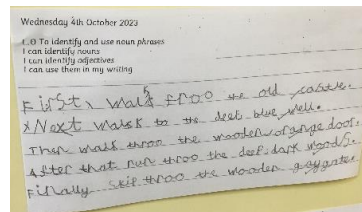 Wednesday 4th October 2023
L.O To identify and use noun phrases
I can identify nouns
I can identify adjectives
I can use them in my writing
First, walk froo the old castle.
Next walk to the deep blue well.
Then walk throo the wooden orange door.
After that run throo the deep dark woods.
Finally skip throo the wooden gate.